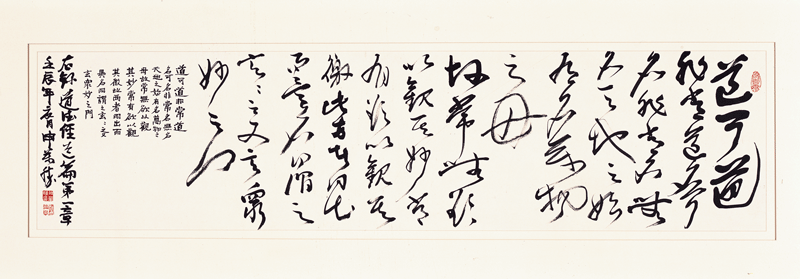 道可道
非常道名可
名非常名無
名天地之始
有名萬物
之母
故常無欲
以觀其妙常
有欲以觀其
徼此兩者同出
而異名同謂之
玄玄之又玄眾
妙之門
道可道非常道
名可名非常名無名
天地之始有名萬物之
母故常無欲以觀
其妙常有欲以觀
其徼此兩者同出而
異名同謂之玄玄之又
玄眾妙之門
右錄道德經道篇第一章
壬辰年夏月